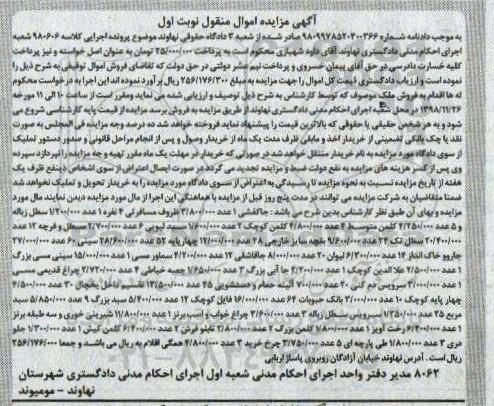 آگهی مزایده اموال منقول نوبت اول
به موجب دادنامه شماره ۹۸۰۹۹۷۸۵۲۰۳۰۰۳۶۶ صادر شده از شعبه ۳ دادگاه حقوقی نهاوند موضوع پرونده اجرایی کلاسه ۹۸۰۶۰۶ شعبه
اجرای احکام مدنی دادگستری نهاوند آقای داود شهبازی محکوم است به پرداخت ۲۵/۰۰۰/۰۰۰ تومان به عنوان اصل خواسته و نیز پرداخت
کلیه خسارت دادرسی در حق آقای پیمان خسروی و پرداخت نیم عشر دولتی در حق دولت که تقاضای فروش اموال توقیفی به شرح ذیل را
نموده است و ارزیاب دادگستری قیمت کل اموال را جهت مزایده به مبلغ ۲۵۶/۱۷۶/۳۰۰ ریال برآورد نموده اند این اجرا به درخواست محکوم
له ها اقدام به فروش ملک موصوف که توسط کارشناس به شرح ذیل توصیف و ارزیابی شده می نماید ومقرر است از ساعت ۱۰ الی ۱۱ مورخه
۱۳۹۸/۱۱/۲۶ در محل شعبه اجرای احکام مدنی دادگستری نهاوند از طریق مزایده به فروش برسد مزایده از قیمت پایه کارشناسی شروع می
شود و به هر شخص حقیقی یا حقوقی که بالاترین قیمت را پیشنهاد نماید فروخته خواهد شد ده درصد وجه مزایده فی المجلس به صورت
نقد یا چک بانکی تضمینی از خریدار اخذ و مابقی ظرف مدت یک ماه از خریدار وصول و پس از انجام مراحل قانونی و صدور دستور تملیک
از سوی دادگاه مورد مزایده به نام خریدار منتقل خواهد شد در صورتی که خریدار در مهلت یک ماه مقرر تهیه وجه مزایده را نپردازد سپرده
وی پس از کسر هزینه های مزایده به نفع دولت ضبط و مزایده تجدید می گردد در صورت ایصال اعتراض از سوی اشخاص ذینفع ظرف یک
هفته از تاریخ مزایده نسبت به نحوه مزایده تا رسیدگی به اعتراض از سوی دادگاه مورد مزایده را به خریدار تحویل و تملیک نخواهد شد
ضمنا متقاضیان به شرکت مزایده می توانند در مدت پنج روز قبل از مزایده با هماهنگی این اجرا از مال مورد مزایده دیدن نمایند مال مورد
مزایده و بهای آن طبق نظر کارشناس بدین شرح می باشد: جاکفشی ۱ عدد ۳/۸۰۰/۰۰۰ ظروف مسافرتی ۴ نفره ۱ عدد ۱/۲۰۰/۰۰۰ سطل زباله
و ۵ عدد ۴/۲۵۰/۰۰۰ کلمن متوسط ۴ عدد ۴/۸۰۰/۰۰۰ کلمن کوچک ۲ عدد ۱/۶۰۰/۰۰۰ سبد لیوپی ۶ عدد ۲/۷۰۰/۰۰۰ سطل و فرچه ۱۲ عدد
۲۰/۴۰۰/۰۰۰ سطل تک ۲۴ عدد ۹/۶۰۰/۰۰۰ بغچه سایز خارجی ۲۸ عدد ۱۲/۰۰۰/۰۰۰ چهارپایه ۵۲ عدد ۲۸/۶۰۰/۰۰۰ سینی ۶۰ عدد ۲۷/۰۰۰/۰۰۰
جارو خاک انداز ۱۴ عدد ۶/۳۰۰/۰۰۰ لیوان ۲۰ عدد ۸/۰۰۰/۰۰۰ جاقاشقی ۱۲ عدد ۴/۲۰۰/۰۰۰ سماور مسی ۱ عدد ۱۵/۰۰۰/۰۰۰ سینی مسی بزرگ
۱ عدد ۲/۵۰۰/۰۰۰ علاالدین کوچک ۱ عدد ۴/۲۰۰/۰۰۰ جا آبی بزرگ ۳ عدد ۱/۶۵۰/۰۰۰ جعبه خیاطی ۴ عدد ۲/۷۲۰/۰۰۰ چراغ قدیمی مسی
۱ عدد ۳/۰۰۰/۰۰۰ سرویس دم کنی ۲۰ عدد ۷۰۰/۰۰۰ آئینه حمام و دستشویی ۴۵ عدد ۱۳/۵۰۰/۰۰۰ تقسیم داخل یخچال ۳۰ عدد ۴/۵۰۰/۰۰۰
چهار پایه کوچک ۱۰ عدد ۳/۰۰۰/۰۰۰ بانک حبوبات ۶۴ عدد ۱۶/۰۰۰/۰۰۰ فایل کوچک ۱۲ عدد ۵/۴۰۰/۰۰۰ سبد بزرگ ۹ عدد ۵/۸۵۰/۰۰۰ سبد
مربع ۲۵ عدد ۱/۲۵۰/۰۰۰ سرویس سطل زباله ۳ عدد ۳/۶۰۰/۰۰۰ چراغ خواب و اسب برنز ۱ عدد ۱۱/۸۰۰/۰۰۰ شیرینی خوری و سه طبقه برنز
۱ عدد ۶/۴۰۰/۰۰۰ رخت آویز ۱ عدد ۱/۸۰۰/۰۰۰ کلمن بزرگ ۲ عدد ۳/۸۰۰/۰۰۰ تابلو فرش ۲ عدد ۶/۴۰۰/۰۰۰ کلمن کیش ۱ عدد ۱/۳۰۰/۰۰۰ جلو
دری ۳ عدد ۱/۸۰۰/۰۰۰ طی پارچه ای ۵ عدد ۳/۷۵۰/۰۰۰ چرخ خرید ۳ عدد ۴/۸۰۰/۰۰۰ همگی اقلام به ریال می باشند و جمعا ۲۵۶/۱۷۶/۰۰۰
ریال است. آدرس نهاوند خیابان آزادگان روبروی پاساژ اریایی
۸۰۶۲ مدیر دفتر واحد اجرای احکام مدنی شعبه اول اجرای احکام مدنی دادگستری شهرستان
نهاوند - مومیوند